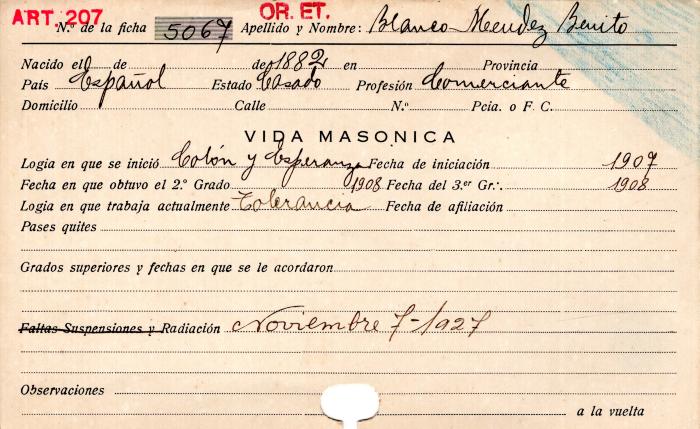 ART. 207 OR. ET.
N.º de la ficha 5067 Apellido y Nombre: Blanco Mendez Benito
Nacido el de de 1882 en Provincia
País Español Estado Casado Profesión Comerciante
Domicilio Calle N.º Pcia. o F. C.
VIDA MASONICA
Logia en que se inició Colón y Esperanza Fecha de iniciación 1907
Fecha en que obtuvo el 2.º Grado 1908 Fecha del 3.er Gr∴. 1908
Logia en que trabaja actualmente Tolerancia Fecha de afiliación
Pases quites
Grados superiores y fechas en que se le acordaron
Faltas Suspensiones y Radiación Noviembre 7-1927
Observaciones
a la vuelta